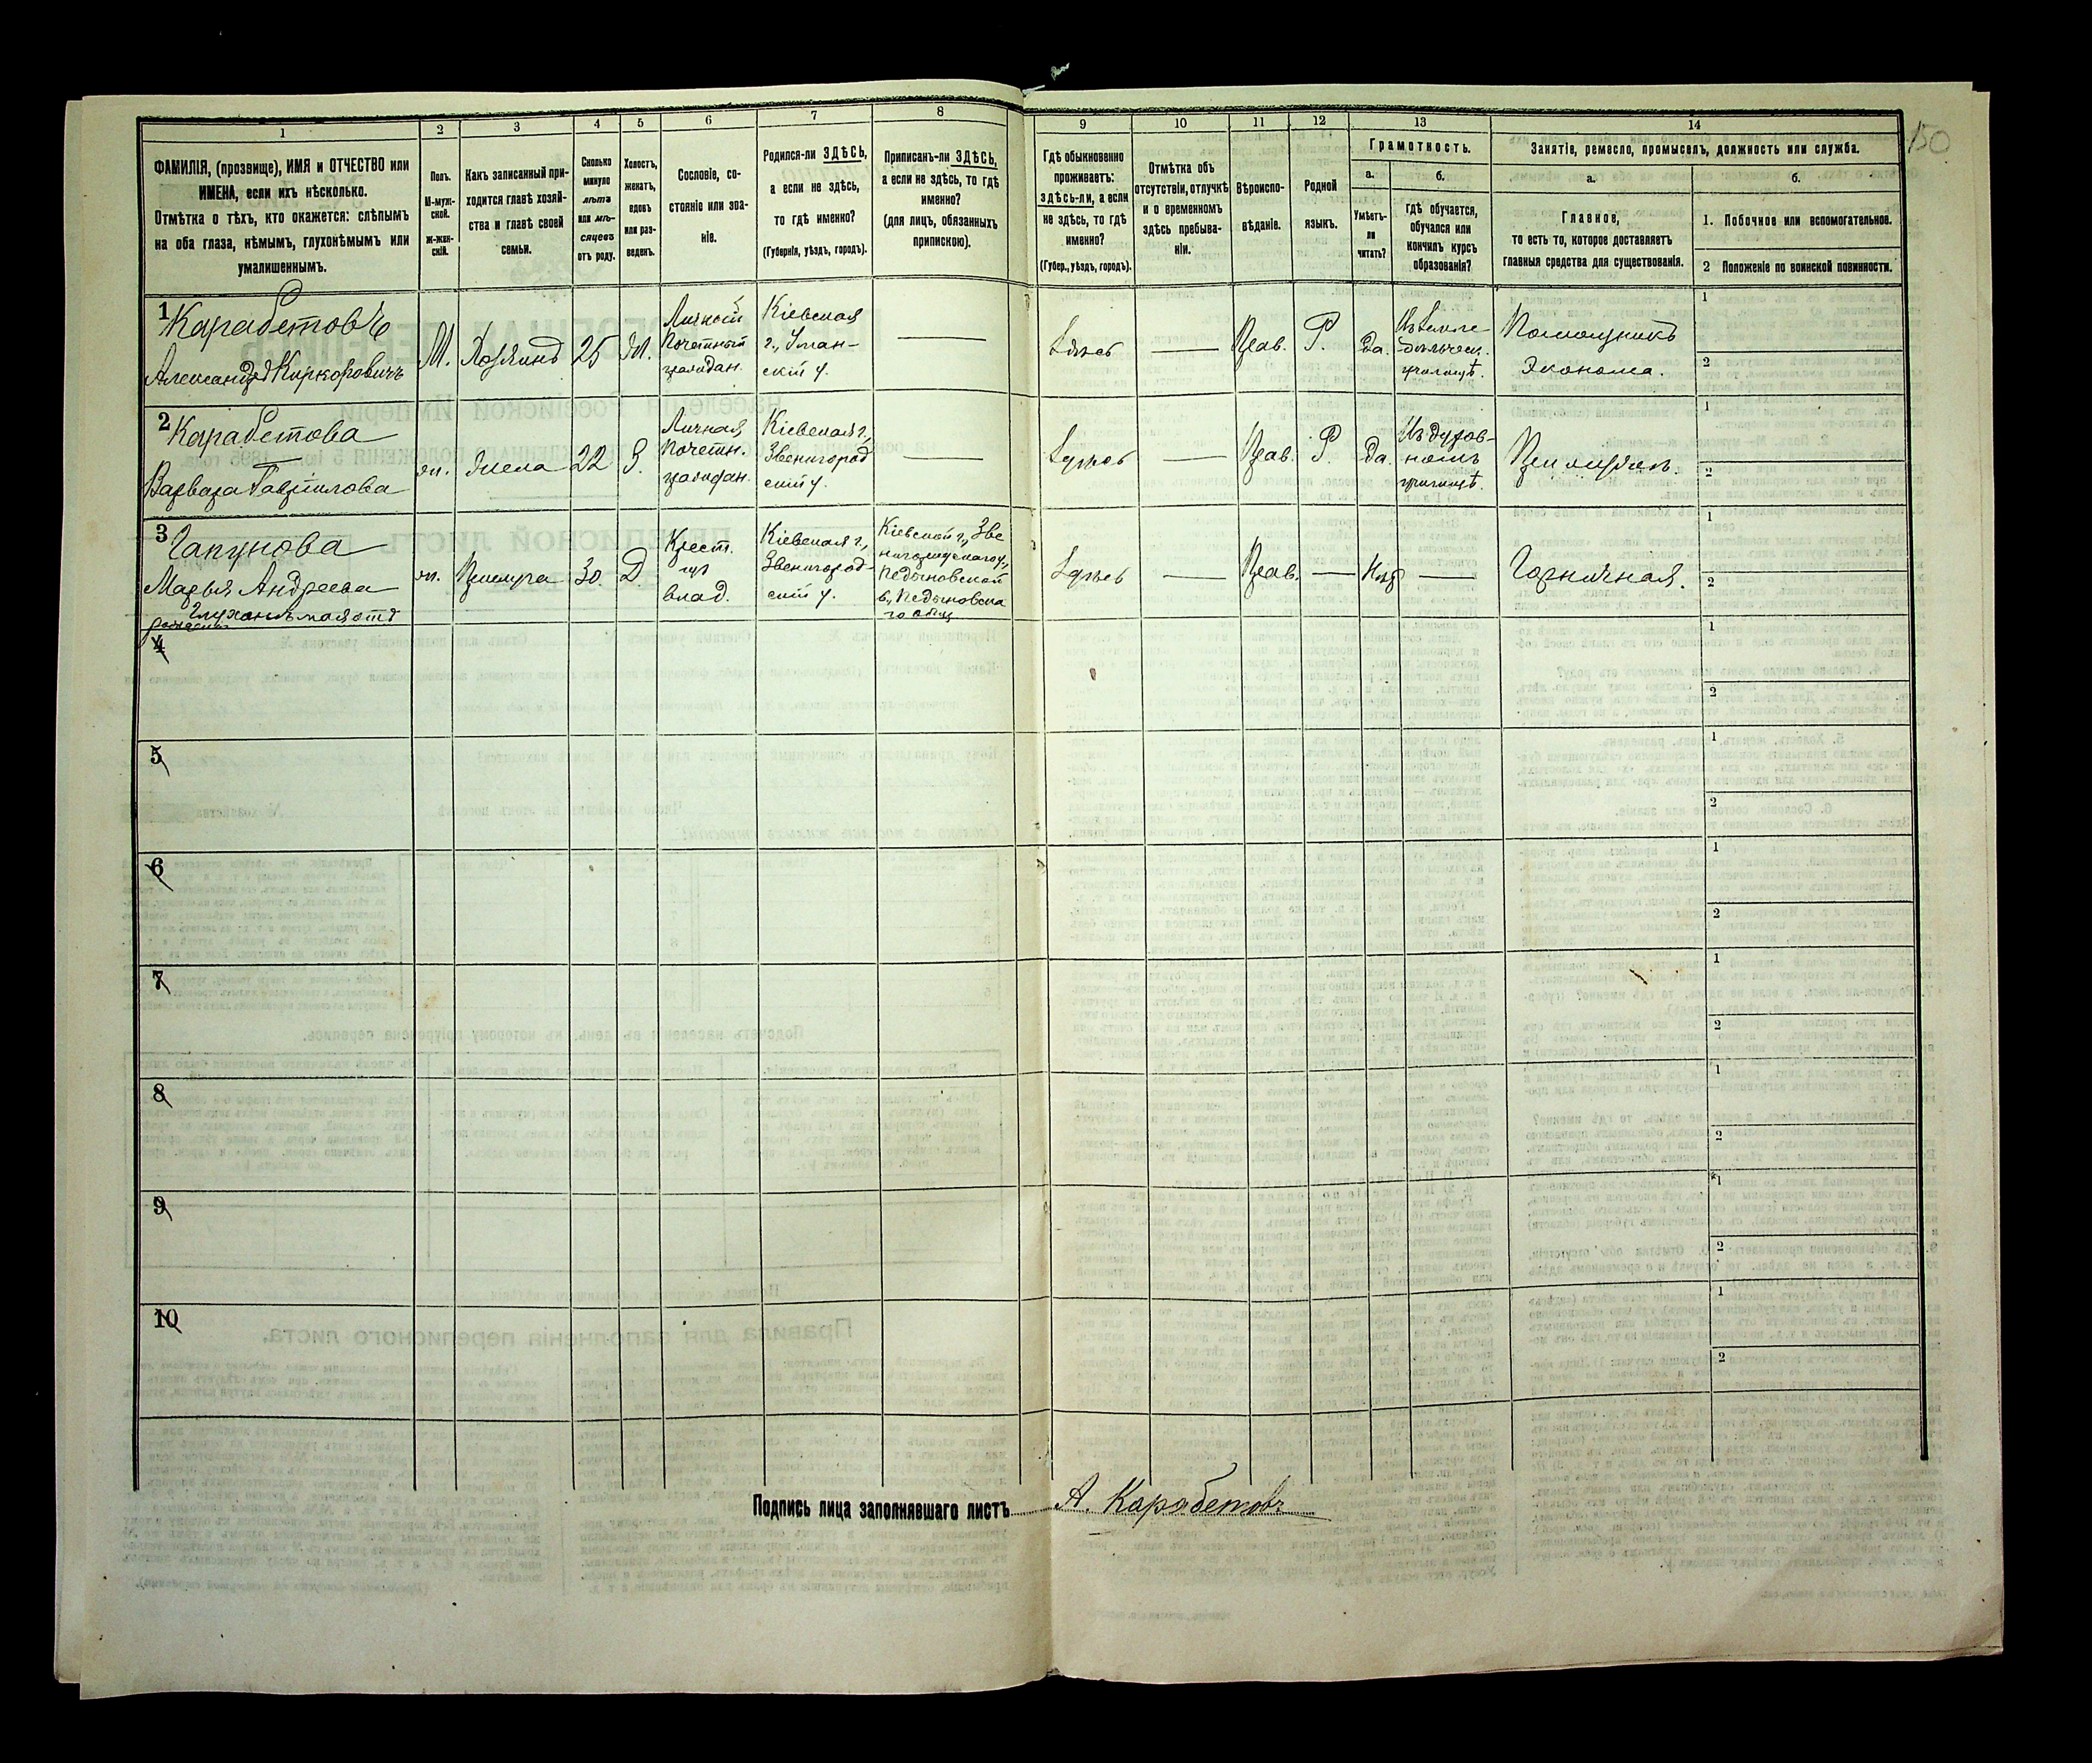 150
1
2
3
4
5
6
7
8
9
10
11
12
13
14
ФАМИЛІЯ, (прозвище), ИМЯ и ОТЧЕСТВО или
ИМЕНА, если ихъ нѣсколько.
Отмѣтка о тѣхъ, кто окажется: слѣпымъ
на оба глаза, нѣмымъ, глухонѣмымъ или
умалишеннымъ.
Полъ.
М-муж-
ской.
ж-жен-
скій.
Какъ записанный при-
ходится главѣ хозяй-
ства и главѣ своей
семьи.
Сколько
минуло
лѣтъ
или мѣ-
сяцевъ
отъ роду.
Холостъ,
женатъ,
вдовъ
или раз-
веденъ.
Сословіе, со-
стояніе или зва-
ніе.
Родился-ли ЗДѢСЬ,
а если не здѣсь,
то гдѣ именно?
(Губернія, уѣздъ, городъ).
Приписанъ-ли ЗДѢСЬ,
а если не здѣсь, то гдѣ
именно?
(для лицъ, обязанныхъ
припискою).
Гдѣ обыкновенно
проживаетъ:
здѣсь-ли, а если
не здѣсь, то гдѣ
именно?
(Губер., уѣздъ, городъ).
Отмѣтка объ
отсутствіи, отлучкѣ
и о временномъ
здѣсь пребыва-
ніи.
Вѣроиспо-
вѣданіе.
Родной
языкъ.
Грамотность.
а.
Умѣетъ-
ли
читать?
б.
Гдѣ обучается,
обучался или
кончилъ курсъ
образованія?
Занятіе, ремесло, промыселъ, должность или служба.
а.
Главное,
то есть то, которое доставляетъ
главныя средства для существованія.
б.
1. Побочное или вспомогательное.
2 Положеніе по воинской повинности.
1
Карабетовъ
Александръ Киркоровичъ
М.
Хозяинъ
25
Ж.
Личный
Почетный
граждан.
Кіевская
г., Уман-
скій у.
Здѣсь
Прав.
Р.
Да.
училищѣ.
Помощникъ
Эконома.
1
2
2
Карабетова
Варвара Гаврилова
ж.
Жена
22
З.
Личная
Почетн.
граждан.
Кіевская г.,
Звенигород
скій у.
Здѣсь
Прав.
Р.
Да.
Въ духов-
номъ
училищѣ.
При мужѣ.
1
2
3
Гапунова
Марья Андреева
Глухонѣмая отъ
рожденія
ж.
Прислуга
30.
Д.
Крест.
изъ
влад.
Кіевская г.,
Звенигород-
скій у.
Кіевской г., Зве
нигородскаго у.,
Педыновской
в., Педыновска
го общ.
Здѣсь
Прав.
Нѣтъ
Горничная.
1
2
4
1
2
5
1
2
6
1
2
7
1
2
8
1
2
9
1
2
10
1
2
Подпись лица заполнявшаго листъ А. Карабетовъ